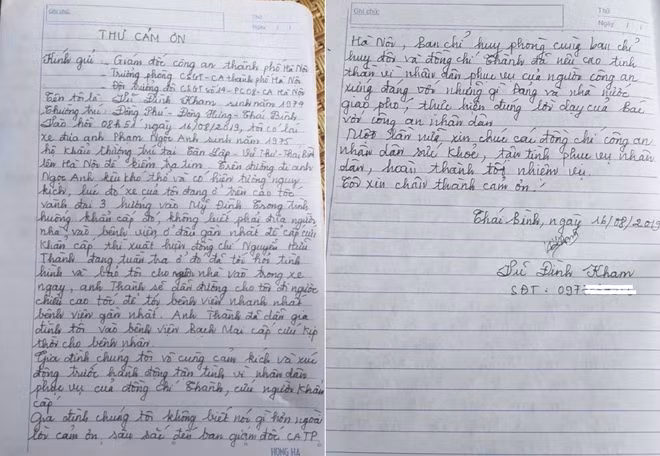 Ghi chú:
Thứ
Ngày
THƯ CẢM ƠN
Kính gửi - Giám đốc công an thành phố Hà Nội
- Trưởng phòng CSĐT-CA thành phố Hà Nội
- Đội trưởng đội CSĐT số 14-PC08-CA Hà Nội
Tên tôi là: Đình Kham sinh năm 1979
Thường trú: Đông Phú - Đông Hưng - Thái Bình.
Vào hồi 08h51 ngày 16/08/2019, tôi có lái
xe đưa anh Phạm Ngọc Anh sinh năm 1975
hộ khẩu thường trú tại Tân Lập - Vũ Thư - Thái Bình
lên Hà Nội để kiểm tra tim. Trên đường đi anh
Ngọc Anh kêu khó thở và có hiện tượng nguy
kịch, lúc đó xe của tôi đang ở trên cao tốc
vành đai 3 hướng vào Mỹ Đình. Trong tình
huống khẩn cấp đó, không biết phải đưa người
nhà vào bệnh viện ở đâu gần nhất để cấp cứu
khẩn cấp thì xuất hiện đồng chí Nguyễn Hữu
Thành đang tuần tra ở đó để tôi hỏi tình
hình và bảo tôi cho người nhà vào trong xe
ngay, anh Thành sẽ dẫn đường cho tôi đi ngược
chiều cao tốc để tới bệnh viện nhanh nhất
bệnh viện gần nhất. Anh Thành đã dẫn gia
đình tôi vào bệnh viện Bạch Mai cấp cứu kịp
thời cho bệnh nhân.
Gia đình chúng tôi vô cùng cảm kích và xúc
động trước hành động tận tình vì nhân dân
phục vụ của đồng chí Thành, cứu người khẩn
cấp
Gia đình chúng tôi không biết nói gì hơn ngoài
lời cảm ơn sâu sắc đến ban giám đốc CATP
HỒNG HÀ
Ghi chú:
Thứ
Ngày
Hà Nội, ban chỉ huy phòng cùng ban chỉ
huy đội và đồng chí Thành đã nêu cao tinh
thần vì nhân dân phục vụ của người công an
xứng đáng với những gì Đảng và nhà nước
giao phó, thực hiện đúng lời dạy của Bác
với công an nhân dân.
Một lần nữa, xin chúc các đồng chí công an
nhân dân sức khỏe, tận tình phục vụ nhân
dân, hoàn thành tốt nhiệm vụ.
Tôi xin chân thành cảm ơn!
Thái Bình, ngày 16/08/2019
Đình Kham
SĐT: 097